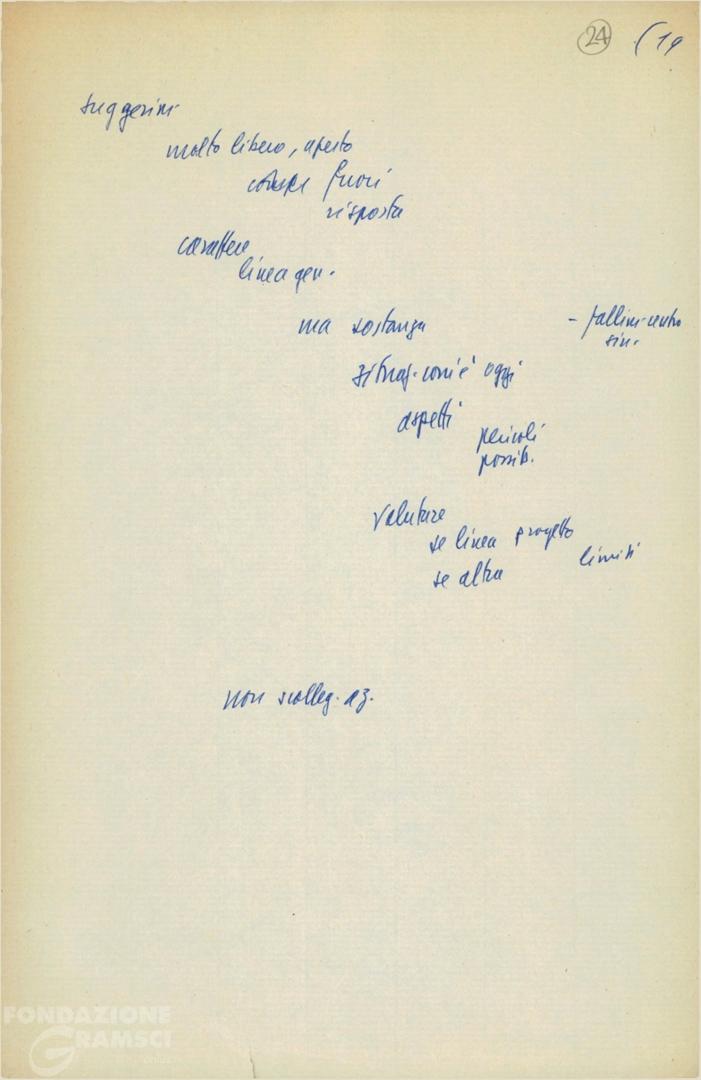 24 (19
suggerim.
molto libero, aperto
fuori
risposta
carattere
linea gen.
ma sostanza
- fallim. centro
sin.
situaz. com'è oggi
aspetti
pericoli
possib.
valutare
se linea progetto
limiti
se altra
non scolleg. az.
FONDAZIONE
GRAMSCI
onlus